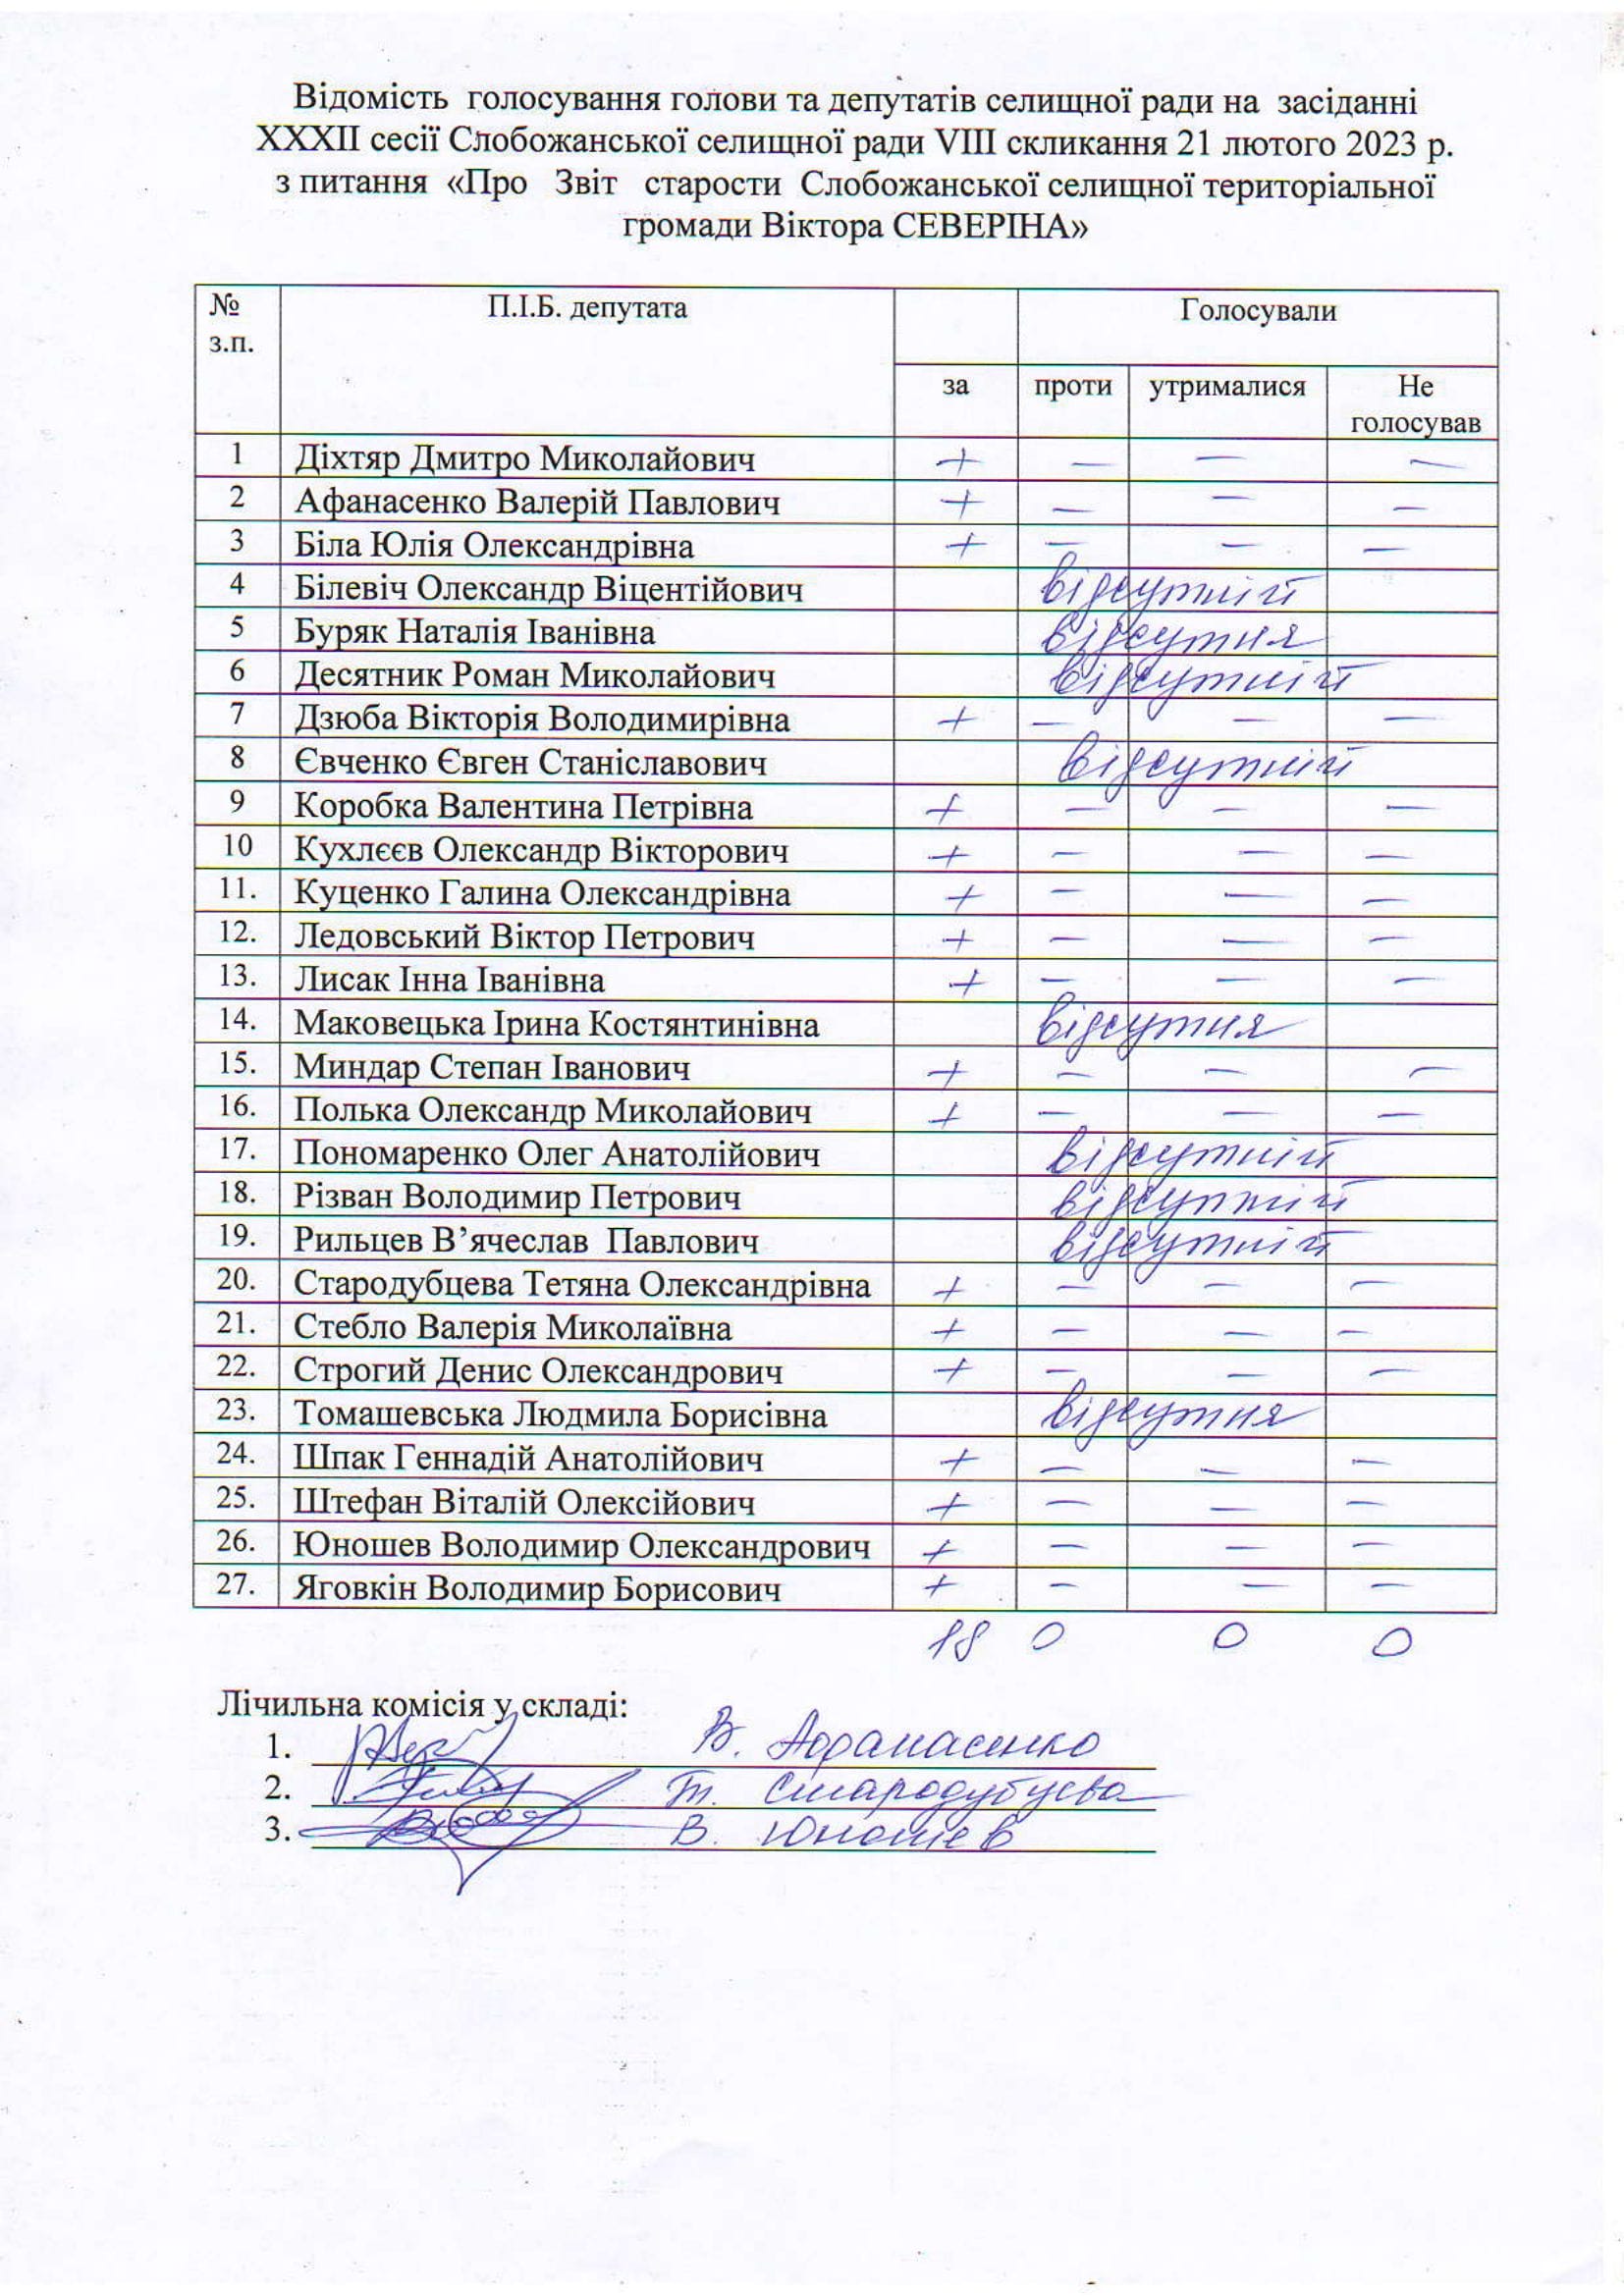 Відомість голосування голови та депутатів селищної ради на засіданні
XXXII сесії Слобожанської селищної ради VIII скликання 21 лютого 2023 р.
з питання «Про Звіт старости Слобожанської селищної територіальної
громади Віктора СЕВЕРІНА»
№ П.І.Б. депутата Голосували
з.п.
за проти утрималися Не
голосував
1 Діхтяр Дмитро Миколайович + — — —
2 Афанасенко Валерій Павлович + — — —
3 Біла Юлія Олександрівна + — — —
4 Білевіч Олександр Віцентійович відсутній
5 Буряк Наталія Іванівна відсутня
6 Десятник Роман Миколайович відсутній
7 Дзюба Вікторія Володимирівна + — — —
8 Євченко Євген Станіславович відсутній
9 Коробка Валентина Петрівна + — — —
10 Кухлєєв Олександр Вікторович + — — —
11. Куценко Галина Олександрівна + — — —
12. Ледовський Віктор Петрович + — — —
13. Лисак Інна Іванівна + — — —
14. Маковецька Ірина Костянтинівна відсутня
15. Миндар Степан Іванович + — — —
16. Полька Олександр Миколайович + — — —
17. Пономаренко Олег Анатолійович відсутній
18. Різван Володимир Петрович відсутній
19. Рильцев В’ячеслав Павлович відсутній
20. Стародубцева Тетяна Олександрівна + — — —
21. Стебло Валерія Миколаївна + — — —
22. Строгий Денис Олександрович + — — —
23. Томашевська Людмила Борисівна відсутня
24. Шпак Геннадій Анатолійович + — — —
25. Штефан Віталій Олексійович + — — —
26. Юношев Володимир Олександрович + — — —
27. Яговкін Володимир Борисович + — — —
18 0 0 0
Лічильна комісія у складі:
1. В. Афанасенко
2. Т. Стародубцева
3. В. Юношев